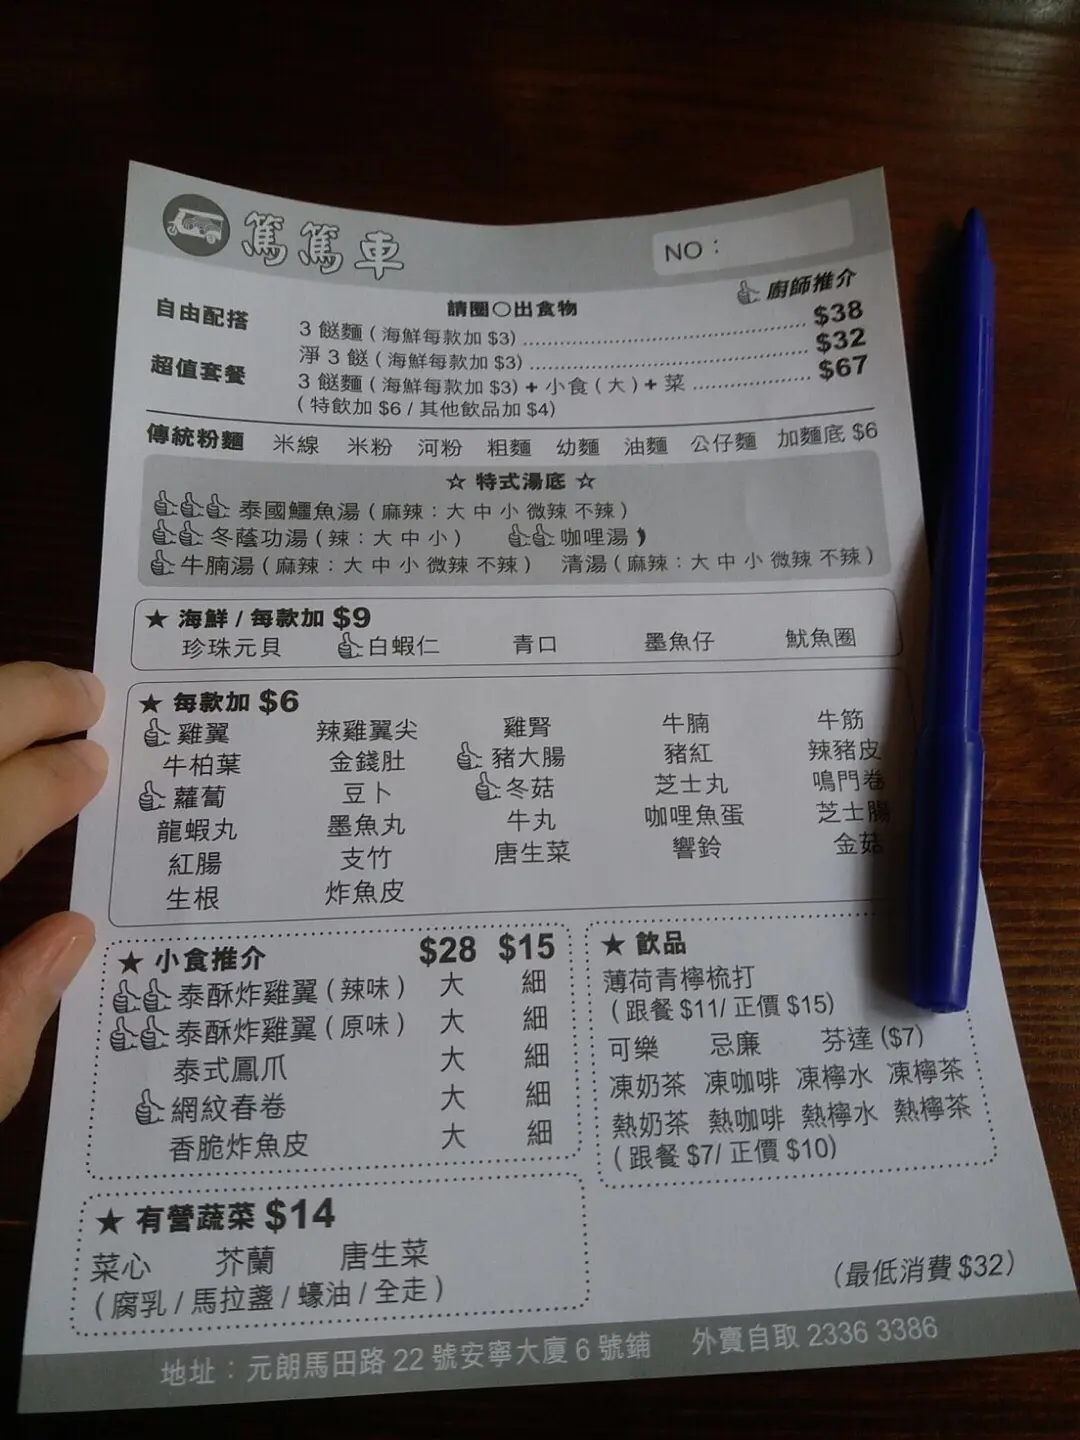 篤篤車
NO：
請圈○出食物
廚師推介
自由配搭
3 餸麵 ( 海鮮每款加 $3) .......... $38
淨 3 餸 ( 海鮮每款加 $3) .......... $32
超值套餐
3 餸麵 ( 海鮮每款加 $3) + 小食 ( 大 ) + 菜 .......... $67
( 特飲加 $6 / 其他飲品加 $4)
傳統粉麵 米線 米粉 河粉 粗麵 幼麵 油麵 公仔麵 加麵底 $6
☆ 特式湯底 ☆
泰國鱷魚湯 ( 麻辣：大 中 小 微辣 不辣 )
冬蔭功湯 ( 辣：大 中 小 ) 咖哩湯
牛腩湯 ( 麻辣：大 中 小 微辣 不辣 ) 清湯 ( 麻辣：大 中 小 微辣 不辣 )
★ 海鮮 / 每款加 $9
珍珠元貝 白蝦仁 青口 墨魚仔 魷魚圈
★ 每款加 $6
雞翼 辣雞翼尖 雞腎 牛腩 牛筋
牛柏葉 金錢肚 豬大腸 豬紅 辣豬皮
蘿蔔 豆卜 冬菇 芝士丸 鳴門卷
龍蝦丸 墨魚丸 牛丸 咖哩魚蛋 芝士腸
紅腸 支竹 唐生菜 響鈴 金菇
生根 炸魚皮
★ 小食推介 $28 $15
泰酥炸雞翼 ( 辣味 ) 大 細
泰酥炸雞翼 ( 原味 ) 大 細
泰式鳳爪 大 細
網紋春卷 大 細
香脆炸魚皮 大 細
★ 飲品
薄荷青檸梳打
( 跟餐 $11/ 正價 $15)
可樂 忌廉 芬達 ($7)
凍奶茶 凍咖啡 凍檸水 凍檸茶
熱奶茶 熱咖啡 熱檸水 熱檸茶
( 跟餐 $7/ 正價 $10)
★ 有營蔬菜 $14
菜心 芥蘭 唐生菜
( 腐乳 / 馬拉盞 / 蠔油 / 全走 )
( 最低消費 $32 )
地址：元朗馬田路 22 號安寧大廈 6 號鋪 外賣自取 2336 3386